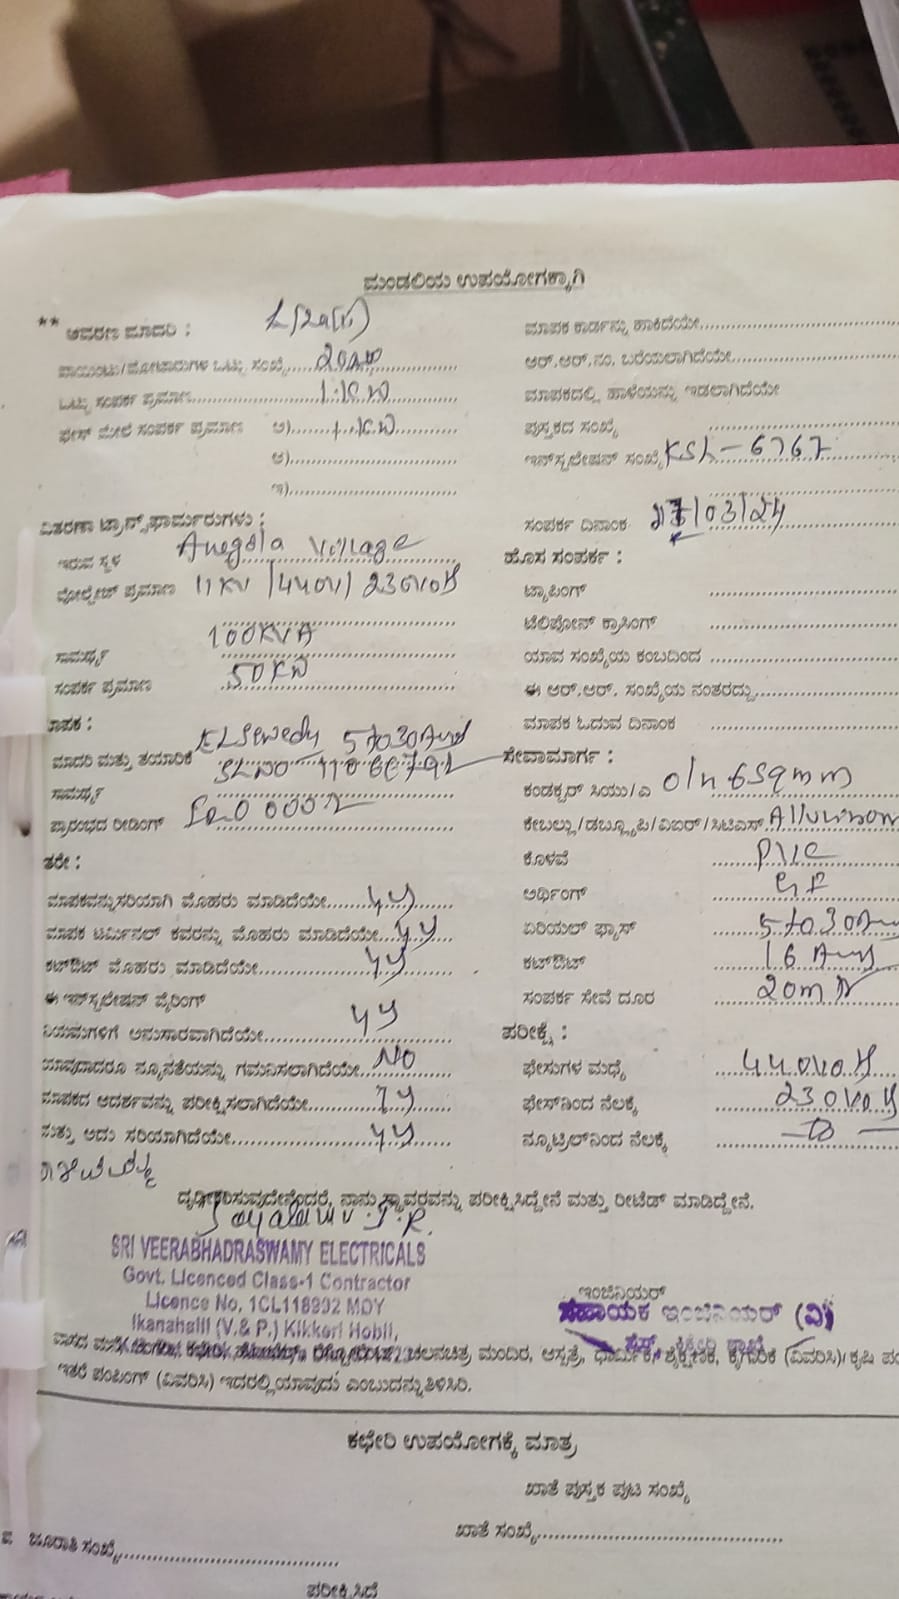 ಮಂಡಲಿಯ ಉಪಯೋಗಕ್ಕಾಗಿ
** ಆವರಣ ಮಾದರಿ :
ಪಾಯಿಂಟು/ಮೋಟಾರುಗಳ ಒಟ್ಟು ಸಂಖ್ಯೆ
ಒಟ್ಟು ಸಂಪರ್ಕ ಪ್ರಮಾಣ 1.KW
ಫೇಸ್ ಮೇಲೆ ಸಂಪರ್ಕ ಪ್ರಮಾಣ ಅ) 1.KW
ಆ)
ಇ)
ವಿತರಣಾ ಟ್ರಾನ್ಸ್‌ಫಾರ್ಮರುಗಳು :
ಇರುವ ಸ್ಥಳ Anegola Village
ವೋಲ್ಟೇಜ್ ಪ್ರಮಾಣ 11KV/440V/230Volt
ಸಾಮರ್ಥ್ಯ 100KVA
ಸಂಪರ್ಕ ಪ್ರಮಾಣ 50KW
ಮಾದರಿ ಮತ್ತು ತಯಾರಿಕೆ ELSewedy 5to30Amp
SLNO
ಸಾಮರ್ಥ್ಯ
ಪ್ರಾರಂಭದ ರೀಡಿಂಗ್
ತರೇ :
ಮಾಪಕವನ್ನು ಸರಿಯಾಗಿ ಮೊಹರು ಮಾಡಿದೆಯೇ
ಮಾಪಕ ಟರ್ಮಿನಲ್ ಕವರನ್ನು ಮೊಹರು ಮಾಡಿದೆಯೇ
ಕಟ್‌ಔಟ್ ಮೊಹರು ಮಾಡಿದೆಯೇ
ಈ ಇನ್‌ಸ್ಟಲೇಷನ್ ವೈರಿಂಗ್
ನಿಯಮಗಳಿಗೆ ಅನುಸಾರವಾಗಿದೆಯೇ
ಯಾವುದಾದರೂ ನ್ಯೂನತೆಯನ್ನು ಗಮನಿಸಲಾಗಿದೆಯೇ NO
ಮಾಪಕದ ಆದರ್ಶವನ್ನು ಪರೀಕ್ಷಿಸಲಾಗಿದೆಯೇ
ಮತ್ತು ಅದು ಸರಿಯಾಗಿದೆಯೇ
ಮಾಪಕ ಕಾರ್ಡನ್ನು ಹಾಕಿದೆಯೇ
ಆರ್.ಆರ್.ನಂ. ಬರೆಯಲಾಗಿದೆಯೇ
ಮಾಪಕದಲ್ಲಿ ಹಾಳೆಯನ್ನು ಇಡಲಾಗಿದೆಯೇ
ಪುಸ್ತಕದ ಸಂಖ್ಯೆ
ಇನ್‌ಸ್ಟಲೇಷನ್ ಸಂಖ್ಯೆ KSL-6767
ಸಂಪರ್ಕ ದಿನಾಂಕ /03/24
ಹೊಸ ಸಂಪರ್ಕ :
ಟ್ಯಾಪಿಂಗ್
ಟೆಲಿಪೋನ್ ಕ್ರಾಸಿಂಗ್
ಯಾವ ಸಂಖ್ಯೆಯ ಕಂಬದಿಂದ
ಈ ಆರ್.ಆರ್. ಸಂಖ್ಯೆಯ ನಂತರದ್ದು
ಮಾಪಕ ಓದುವ ದಿನಾಂಕ
ಸೇವಾಮಾರ್ಗ :
ಕಂಡಕ್ಟರ್ ಸಿಯು/ಎ O/n 6sqmm
ಕೇಬಲ್ಲು/ಡಬ್ಲ್ಯೂಪಿ/ವಿಐಆರ್/ಸಿಟಿಎಸ್
ಕೊಳವೆ PVC
ಅರ್ಥಿಂಗ್
ಏರಿಯಲ್ ಫ್ಯೂಸ್ 5to30Amp
ಕಟ್‌ಔಟ್ 16 Amp
ಸಂಪರ್ಕ ಸೇವೆ ದೂರ
ಪರೀಕ್ಷೆ :
ಫೇಸುಗಳ ಮಧ್ಯೆ 440Volt
ಫೇಸ್‌ನಿಂದ ನೆಲಕ್ಕೆ 230Volt
ನ್ಯೂಟ್ರಲ್‌ನಿಂದ ನೆಲಕ್ಕೆ
ದೃಢೀಕರಿಸುವುದೇನೆಂದರೆ, ನಾನು ಸ್ಥಾವರವನ್ನು ಪರೀಕ್ಷಿಸಿದ್ದೇನೆ ಮತ್ತು ರೀಟೆಡ್ ಮಾಡಿದ್ದೇನೆ.
SRI VEERABHADRASWAMY ELECTRICALS
Govt. Licenced Class-1 Contractor
Licence No. 1CL118992 MDY
Ikanahalli (V.& P.) Kikkeri Hobli,
ಇಂಜಿನಿಯರ್
ಸಹಾಯಕ ಇಂಜಿನಿಯರ್ (ವಿ)
ಚಲನಚಿತ್ರ ಮಂದಿರ, ಆಸ್ಪತ್ರೆ, ಧಾರ್ಮಿಕ, ಶೈಕ್ಷಣಿಕ, ಕೈಗಾರಿಕೆ (ವಿವರಿಸಿ)/ ಕೃಷಿ
ಇತರೆ ಪಂಪಿಂಗ್ (ವಿವರಿಸಿ) ಇದರಲ್ಲಿ ಯಾವುದು ಎಂಬುದನ್ನು ತಿಳಿಸಿರಿ.
ಕಛೇರಿ ಉಪಯೋಗಕ್ಕೆ ಮಾತ್ರ
ಖಾತೆ ಪುಸ್ತಕ ಪುಟ ಸಂಖ್ಯೆ
ಖಾತೆ ಸಂಖ್ಯೆ
ಜೂರಾತಿ ಸಂಖ್ಯೆ
ಪರೀಕ್ಷಿಸಿದೆ